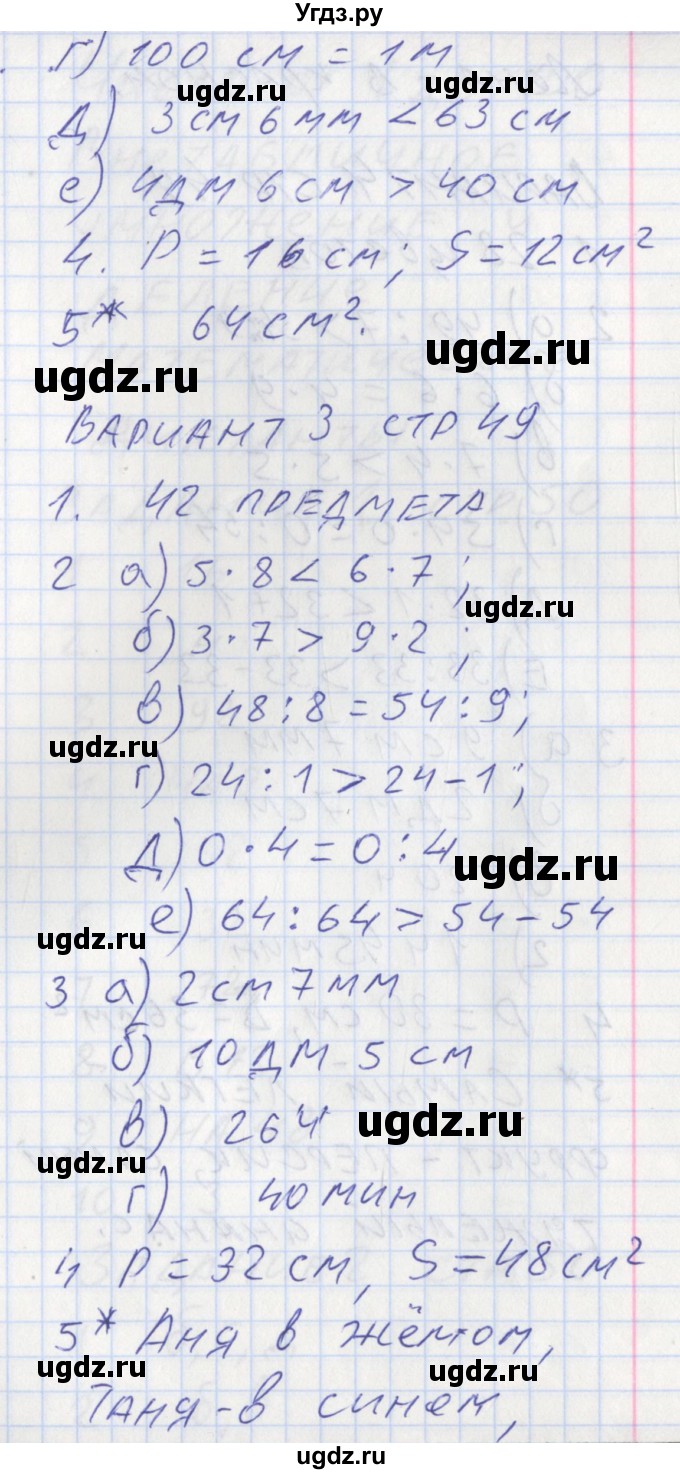 Угдз.ру
г) 100 см = 1 м
ugdz.ru
д) 3 см 6 мм < 63 см
е) 4 дм 6 см > 40 см
4. P = 16 см; S = 12 см²
5* 64 см².
ugdz.ru
ugdz.ru
ВАРИАНТ 3 СТР 49
1. 42 ПРЕДМЕТА
2 а) 5 · 8 < 6 · 7;
ugdz.ru
б) 3 · 7 > 9 · 2;
в) 48 : 8 = 54 : 9;
ugdz.ru
г) 24 : 1 > 24 - 1;
д) 0 · 4 = 0 : 4
ugdz.ru
е) 64 : 64 > 54 - 54
ugdz.ru
3 а) 2 см 7 мм
б) 10 дм 5 см
в) 264
ugdz.ru
ugdz.ru
г) 40 мин
4 P = 32 см, S = 48 см²
5* Аня в жёлтом,
ugdz.ru
ugdz.ru
Таня - в синем,
ugdz.ru